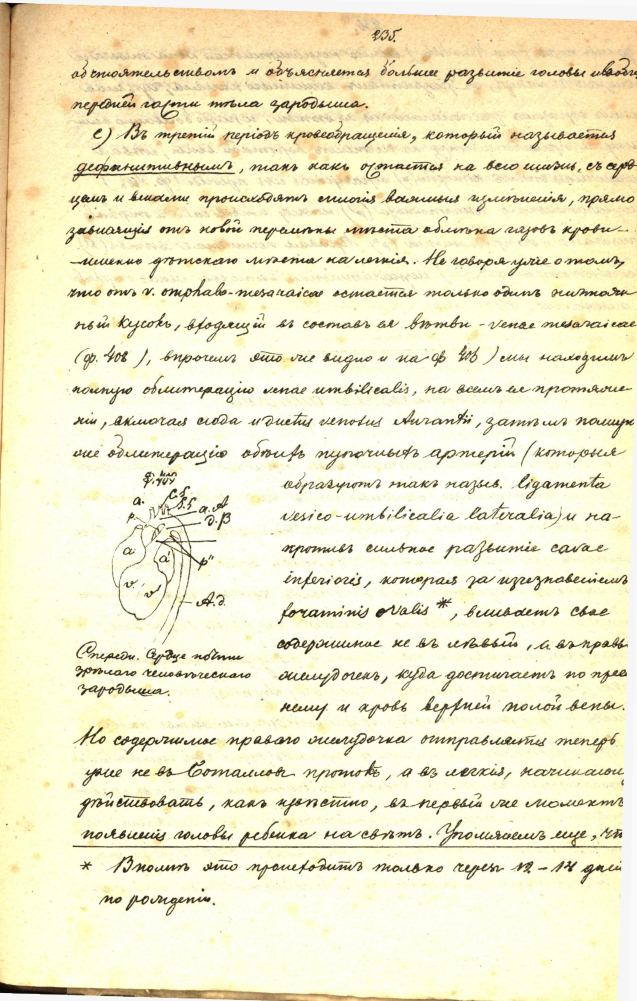 235.
обстоятельствомъ и объясняется большее развитіе головы и вообще
передней части тѣла зародыша.
c) Въ третій періодъ кровеобращенія, который называется
дефинитивнымъ, такъ какъ остается на всю жизнь, съ серд-
цемъ и венами происходятъ многія важныя измѣненія, прямо
зависящія отъ новой перемѣны мѣста обмѣна газовъ крови -
именно дѣтскаго мѣста на легкія. Не говоря уже о томъ,
что отъ v. omphalo-mesaraicae остается только одинъ
ный кусокъ, входящій въ составъ ея вѣтви - venae mesaraicae
(ф. 408), впрочемъ это же видно и на ф 403) мы находимъ
полную облитерацію venae umbilicalis, на всемъ ея протяже-
ніи, включая сюда и ductus venosus Aurantii, затѣмъ полную
же облитерацію обѣихъ пупочныхъ артерій (которыя
образуютъ такъ назыв. ligamenta
vesico-umbilicalia lateralia) и на-
противъ сильное развитіе cavae
inferioris, которая за изчезновеніемъ
foraminis ovalis *, вливаетъ свое
содержимое не въ лѣвый, а въ правый
желудочекъ, куда достигаетъ по преж-
нему и кровь верхней полой вены.
Ф. 404
a.
C.S.
S.S
a. A
p.
d. B
a
a'
p"
v
v'
A.d.
Спереди. Сердце почти
зрѣлаго человѣческаго
зародыша.
Но содержимое праваго желудочка отправляется теперь
уже не въ Боталловъ протокъ, а въ легкія, начинающія
дѣйствовать, какъ извѣстно, въ первый же моментъ
появленія головы ребенка на свѣтъ. Упомянемъ еще, что
* Вполнѣ это происходитъ только черезъ 12 - 14 дней
по рожденіи.